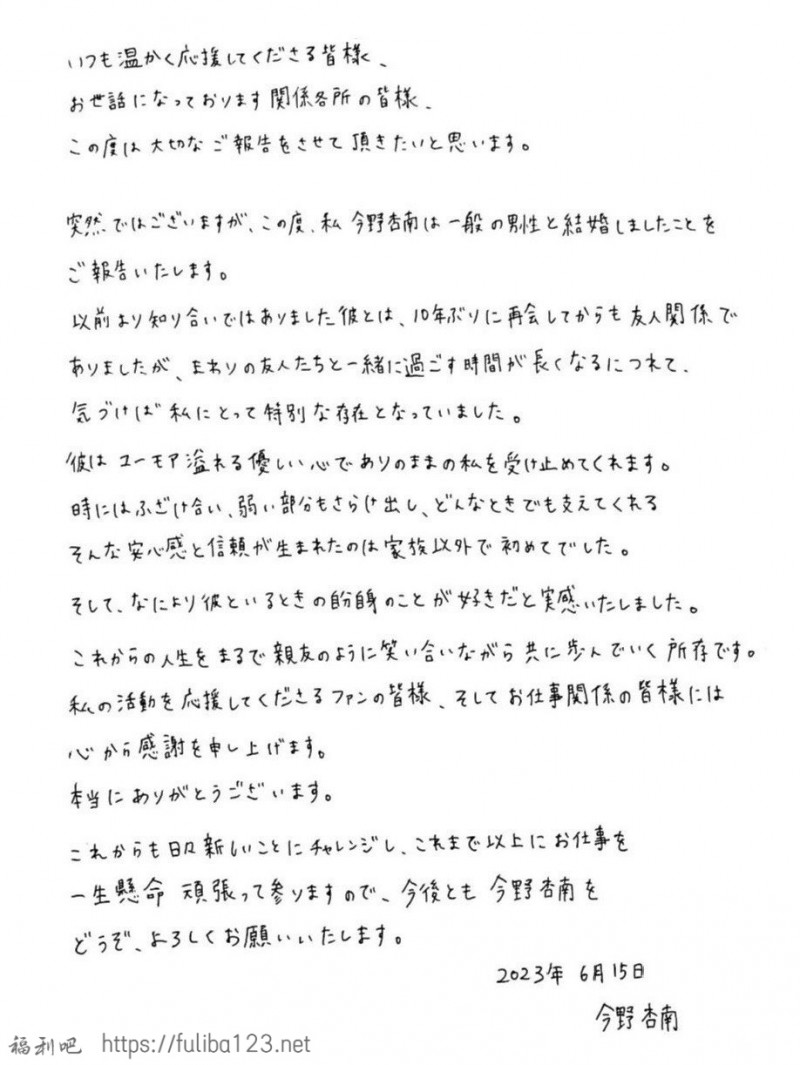 いつも温かく応援してくださる皆様、
お世話になっております関係各所の皆様、
この度は大切なご報告をさせて頂きたいと思います。
突然ではございますが、この度、私 今野杏南は一般の男性と結婚しましたことを
ご報告いたします。
以前より知り合いではありました彼とは、10年ぶりに再会してからも友人関係で
ありましたが、まわりの友人たちと一緒に過ごす時間が長くなるにつれて、
気づけば私にとって特別な存在となっていました。
彼はユーモア溢れる優しい心でありのままの私を受け止めてくれます。
時にはふざけ合い、弱い部分もさらけ出し、どんなときでも支えてくれる
そんな安心感と信頼が生まれたのは家族以外で初めてでした。
そして、なにより彼といるときの自分自身のことが好きだと実感いたしました。
これからの人生をまるで親友のように笑い合いながら共に歩んでいく所存です。
私の活動を応援してくださるファンの皆様、そしてお仕事関係の皆様には
心から感謝を申し上げます。
本当にありがとうございます。
これからも日々新しいことにチャレンジし、これまで以上にお仕事を
一生懸命 頑張って参りますので、今後とも 今野杏南を
どうぞ、よろしくお願いいたします。
2023年 6月15日
今野杏南
福利吧 https://fuliba123.net